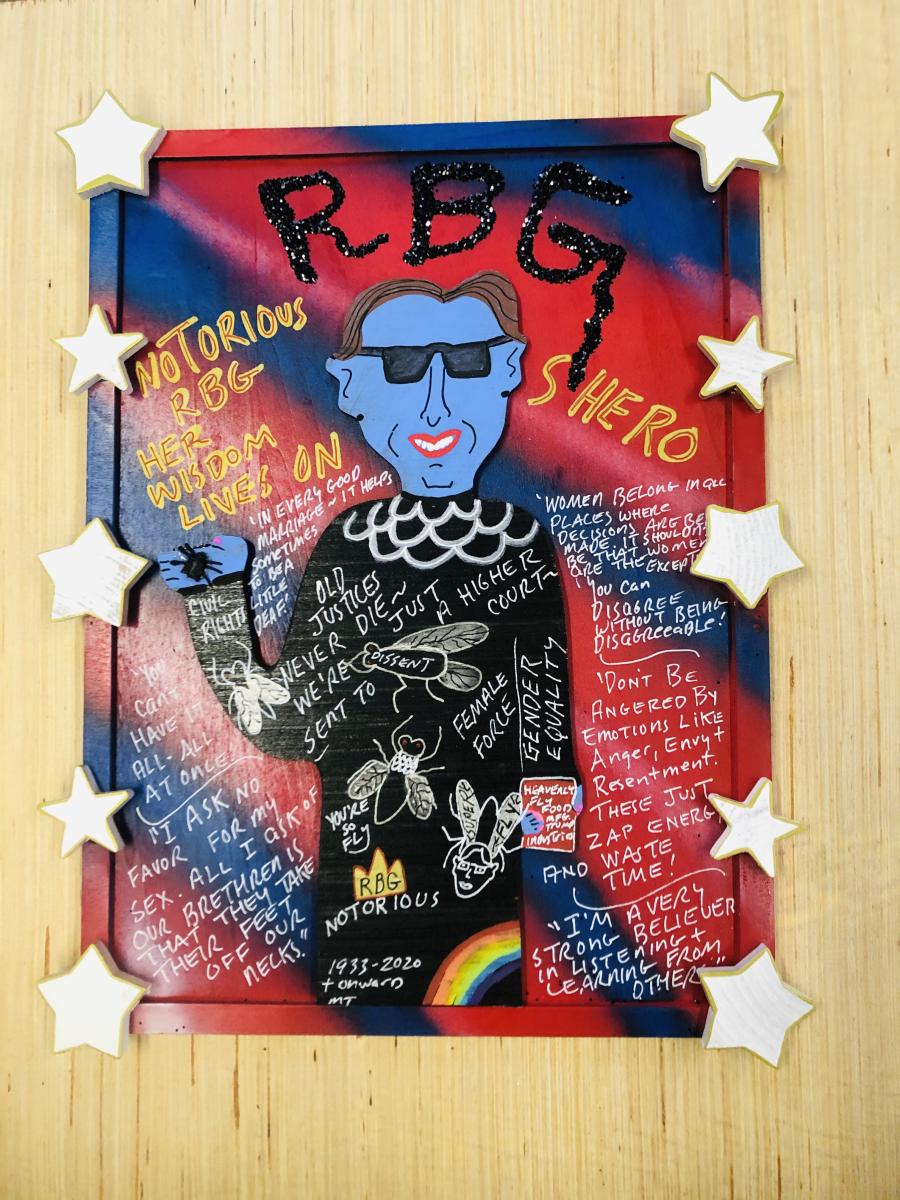 RBG
NOTORIOUS
RBG
HER
WISDOM
LIVES ON
SHERO
"IN EVERY GOOD
MARRIAGE ~ IT HELPS
SOMETIMES
TO BE A
LITTLE
DEAF!"
"WOMEN BELONG IN ALL
PLACES WHERE
DECISIONS ARE BE
MADE. IT SHOULDN'T
BE THAT WOMEN
ARE THE EXCEPT
You Can
DISAGREE
WITHOUT BEING
DISAGREEABLE!
'DON'T BE
ANGERED BY
EMOTIONS LIKE
Anger, Envy +
Resentment.
THESE JUST
ZAP ENERGY
AND WASTE
TIME!
"I'M A VERY
STRONG BELIEVER
IN LISTENING +
LEARNING FROM
OTHERS."
CIVIL
RIGHTS
OLD
JUSTICES
NEVER DIE~
WE'RE JUST
SENT TO
A HIGHER
COURT~
DISSENT
FEMALE
FORCE
GENDER
EQUALITY
YOU'RE
SO
FLY
SUPER
HEAVENLY
FLY FOOD
MFG.
TRUMP
INDUSTRIES
RBG
NOTORIOUS
1933-2020
+ onward
MT
"YOU
CAN'T
HAVE IT
ALL. ALL
AT ONCE!"
"I ASK NO
FAVOR FOR MY
SEX. ALL I ASK OF
OUR BRETHREN IS
THAT THEY TAKE
THEIR FEET
OFF OUR
NECKS."